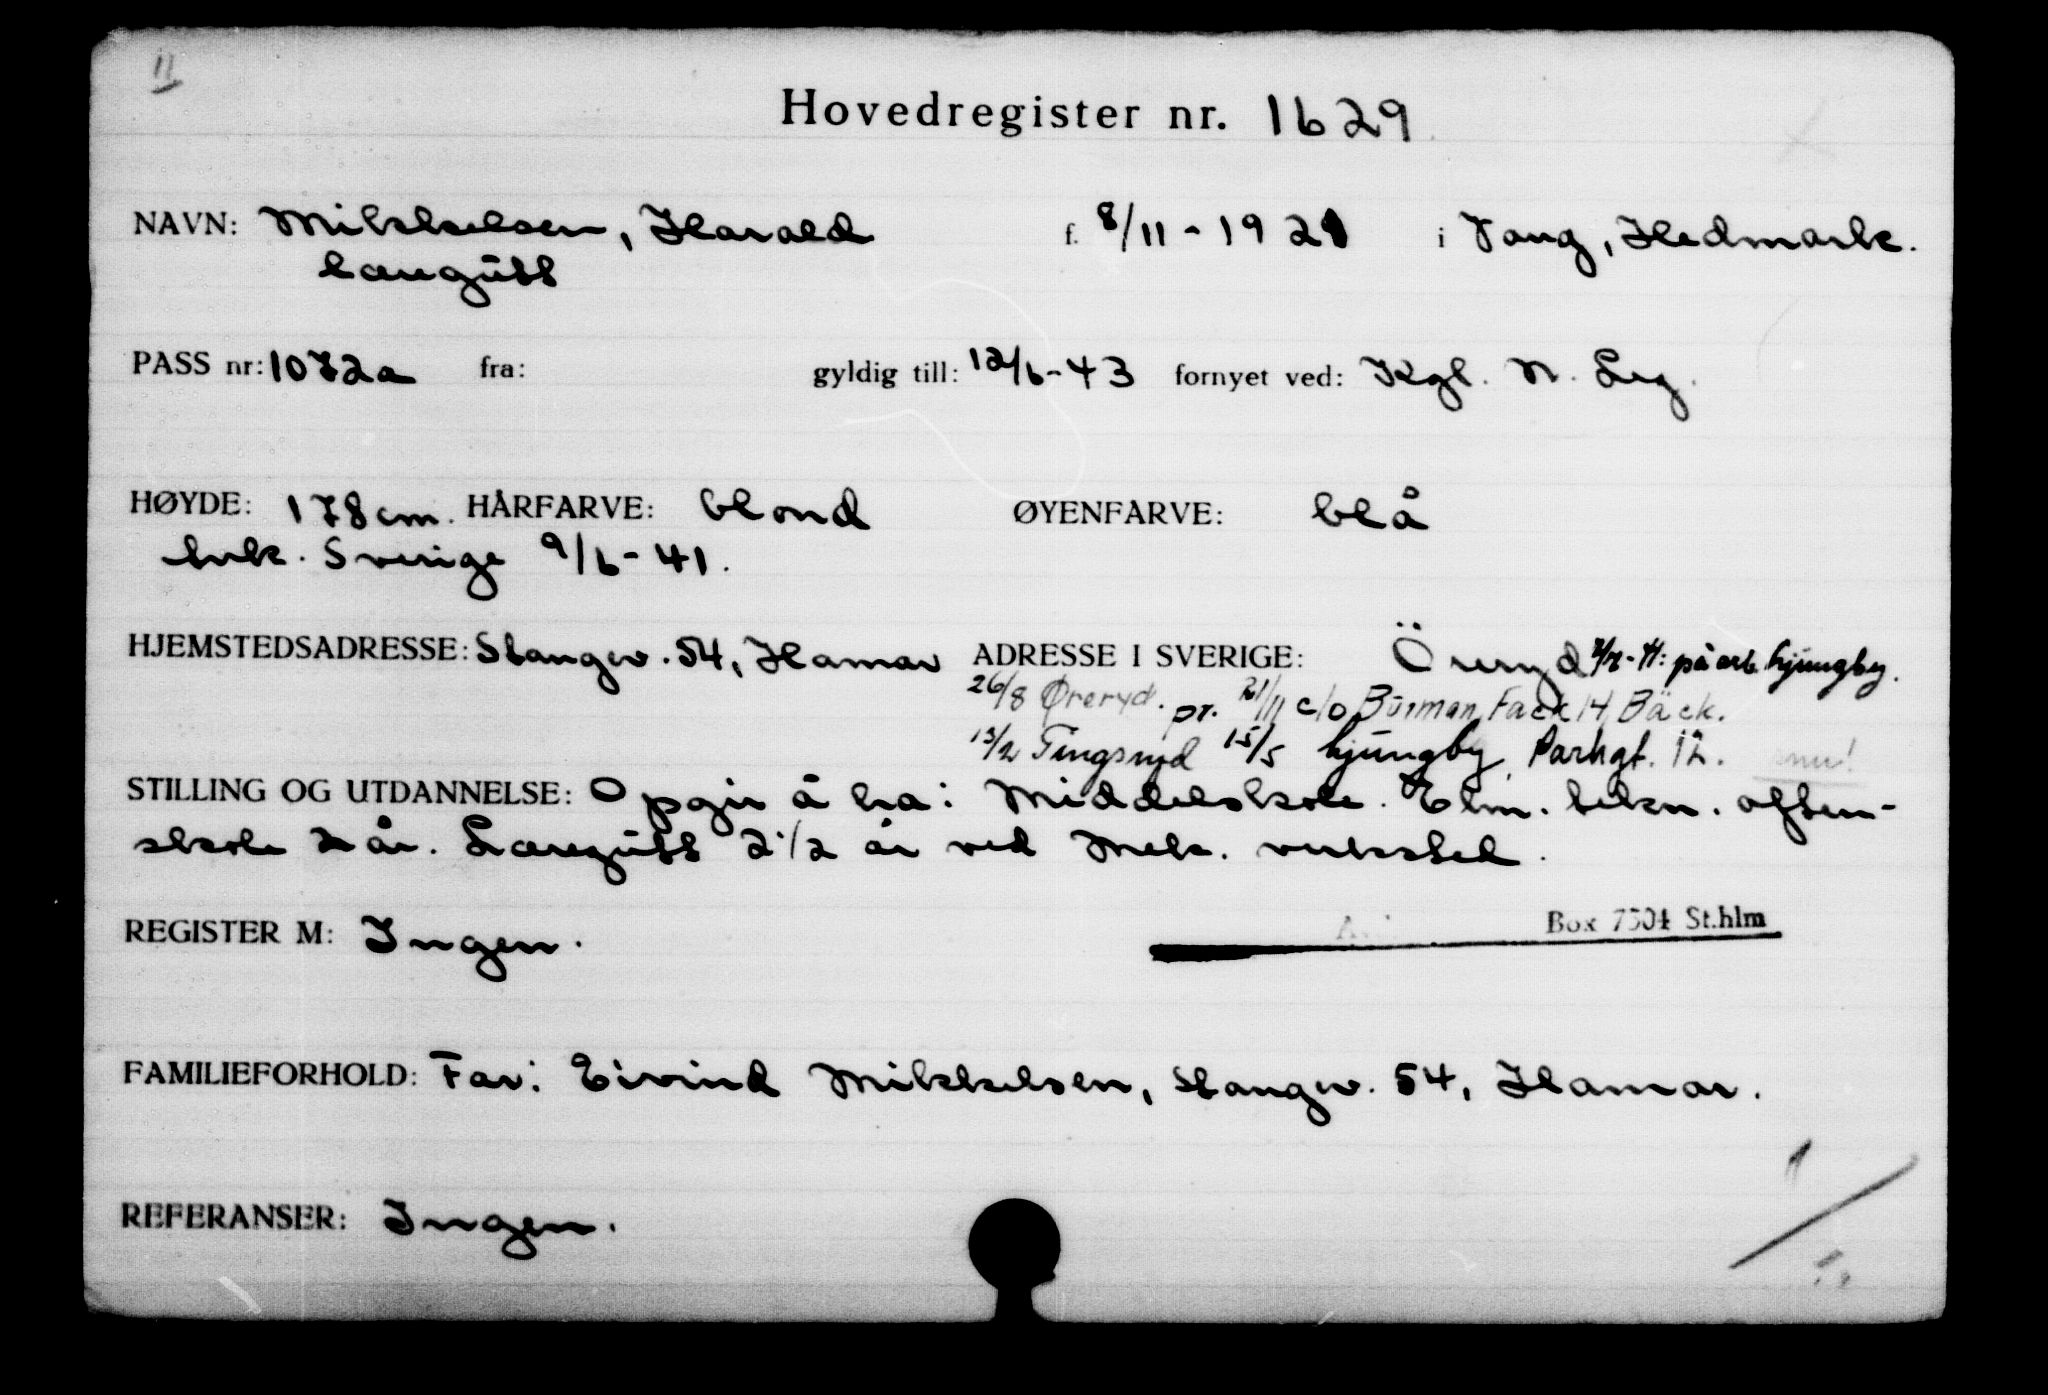 11
Hovedregister nr. 1629
NAVN: Mikkelsen, Harald f. 8/11 - 1921 i Vang, Hedmark.
læregutt
PASS nr: 1072a fra: gyldig till: 12/6-43 fornyet ved: Kgl. N. Leg.
HØYDE: 178 cm. HÅRFARVE: blond ØYENFARVE: blå
Ank. Sverige 9/6-41.
HJEMSTEDSADRESSE: Stangev. 54, Hamar ADRESSE I SVERIGE: Öreryd på arb. Ljungby.
26/8 Øreryd. pr. 21/11 c/o Burman, Fack 14, Bäck.
13/2 Tingsryd 15/5 Ljungby, Parkgt. 12.
STILLING OG UTDANNELSE: Opgir å ha: Middelskole. Elm. tekn. aften-
skole 2 år. Læregutt 2 1/2 år ved Mek. verksted.
REGISTER M: Ingen.
Box 7504 St.hlm
FAMILIEFORHOLD: Far: Eivind Mikkelsen, Stangev. 54, Hamar.
REFERANSER: Ingen.